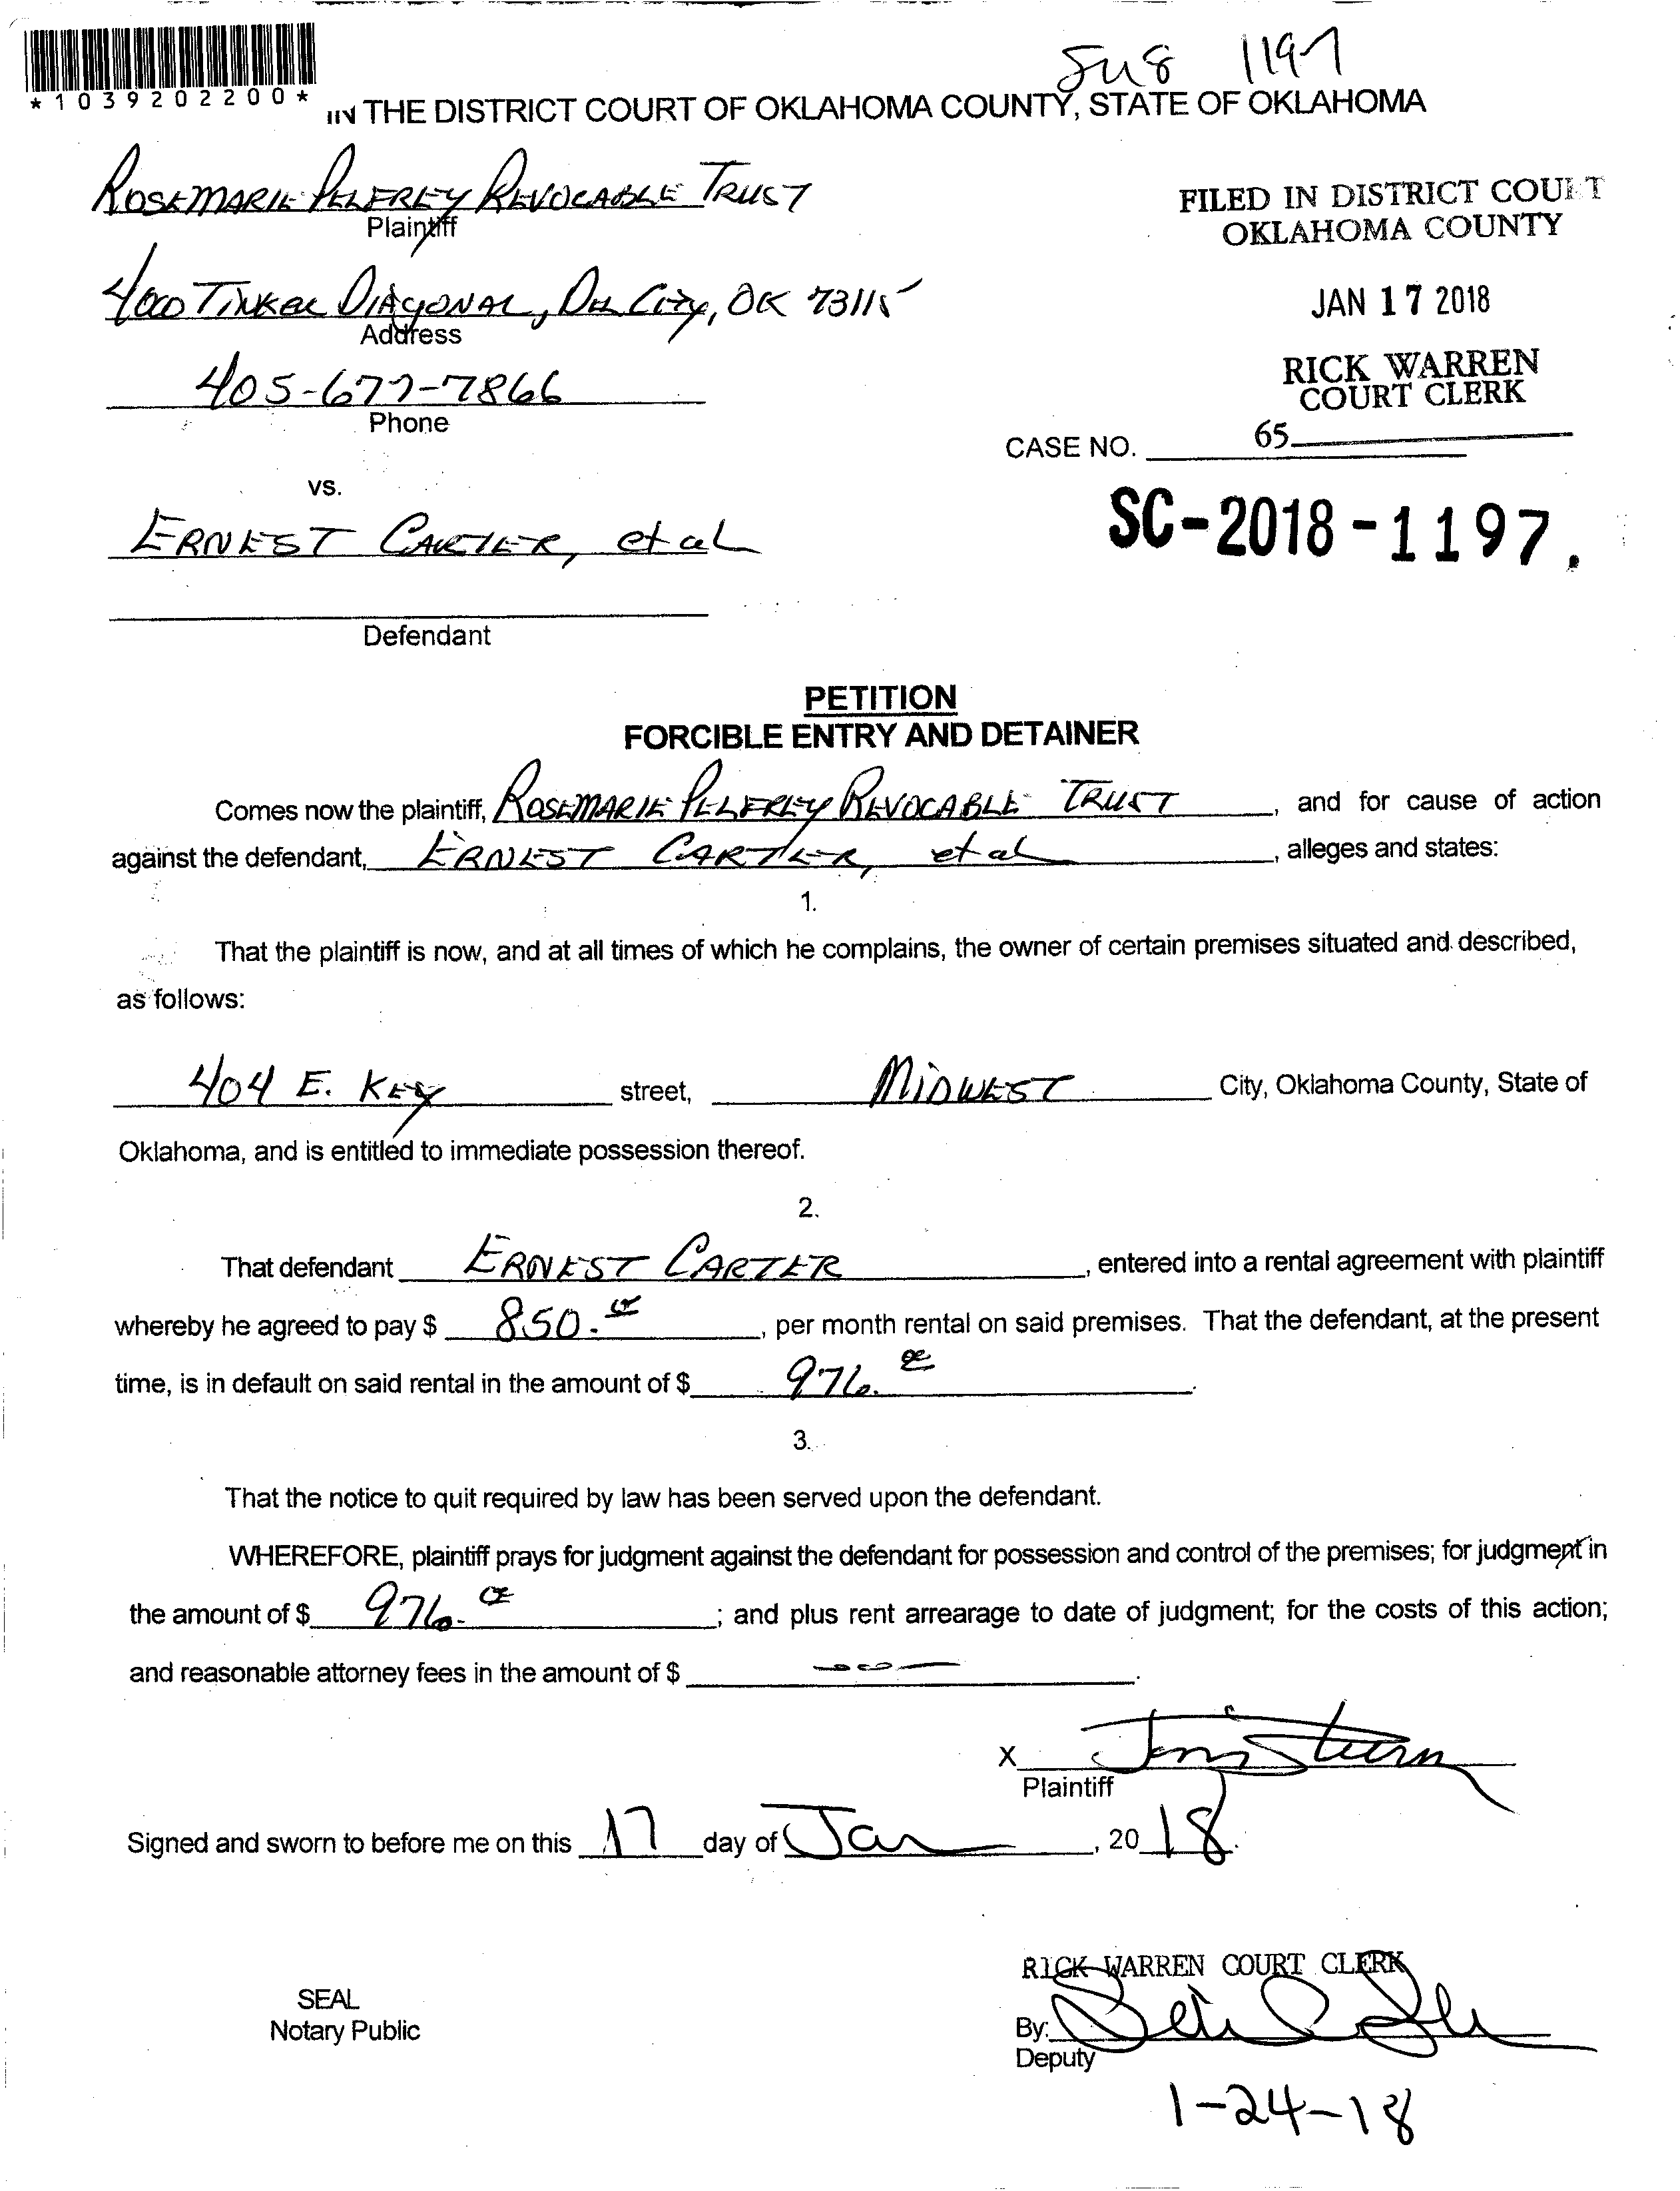 *1039202200*
1197
IN THE DISTRICT COURT OF OKLAHOMA COUNTY, STATE OF OKLAHOMA
ROSEMARIE PELFREY REVOCABLE TRUST
Plaintiff
FILED IN DISTRICT COURT
OKLAHOMA COUNTY
4000 TINKER DIAGONAL, DEL CITY, OK 73115
Address
JAN 17 2018
405-677-7866
Phone
RICK WARREN
COURT CLERK
CASE NO. 65
vs.
ERNEST CARTER, et al
SC-2018-1197.
Defendant
PETITION
FORCIBLE ENTRY AND DETAINER
Comes now the plaintiff, ROSEMARIE PELFREY REVOCABLE TRUST, and for cause of action
against the defendant, ERNEST CARTER, et al, alleges and states:
1.
That the plaintiff is now, and at all times of which he complains, the owner of certain premises situated and described,
as follows:
404 E. KEY street, MIDWEST City, Oklahoma County, State of
Oklahoma, and is entitled to immediate possession thereof.
2.
That defendant ERNEST CARTER, entered into a rental agreement with plaintiff
whereby he agreed to pay $ 850.00, per month rental on said premises. That the defendant, at the present
time, is in default on said rental in the amount of $ 976.00.
3.
That the notice to quit required by law has been served upon the defendant.
WHEREFORE, plaintiff prays for judgment against the defendant for possession and control of the premises; for judgment in
the amount of $ 976.00; and plus rent arrearage to date of judgment; for the costs of this action;
and reasonable attorney fees in the amount of $
X
Plaintiff
Signed and sworn to before me on this 17 day of Jan, 2018.
RICK WARREN COURT CLERK
SEAL
Notary Public
By:
Deputy
1-24-18